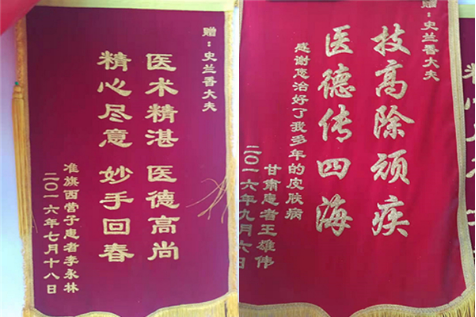 赠：史兰香大夫
医术精湛 医德高尚
精心尽意 妙手回春
准旗西营子患者李永林
二〇一六年七月十八日
赠：史兰香大夫
技高除顽疾
医德传四海
感谢您治好了我多年的皮肤病
甘肃患者王雄伟
二〇一六年九月六日